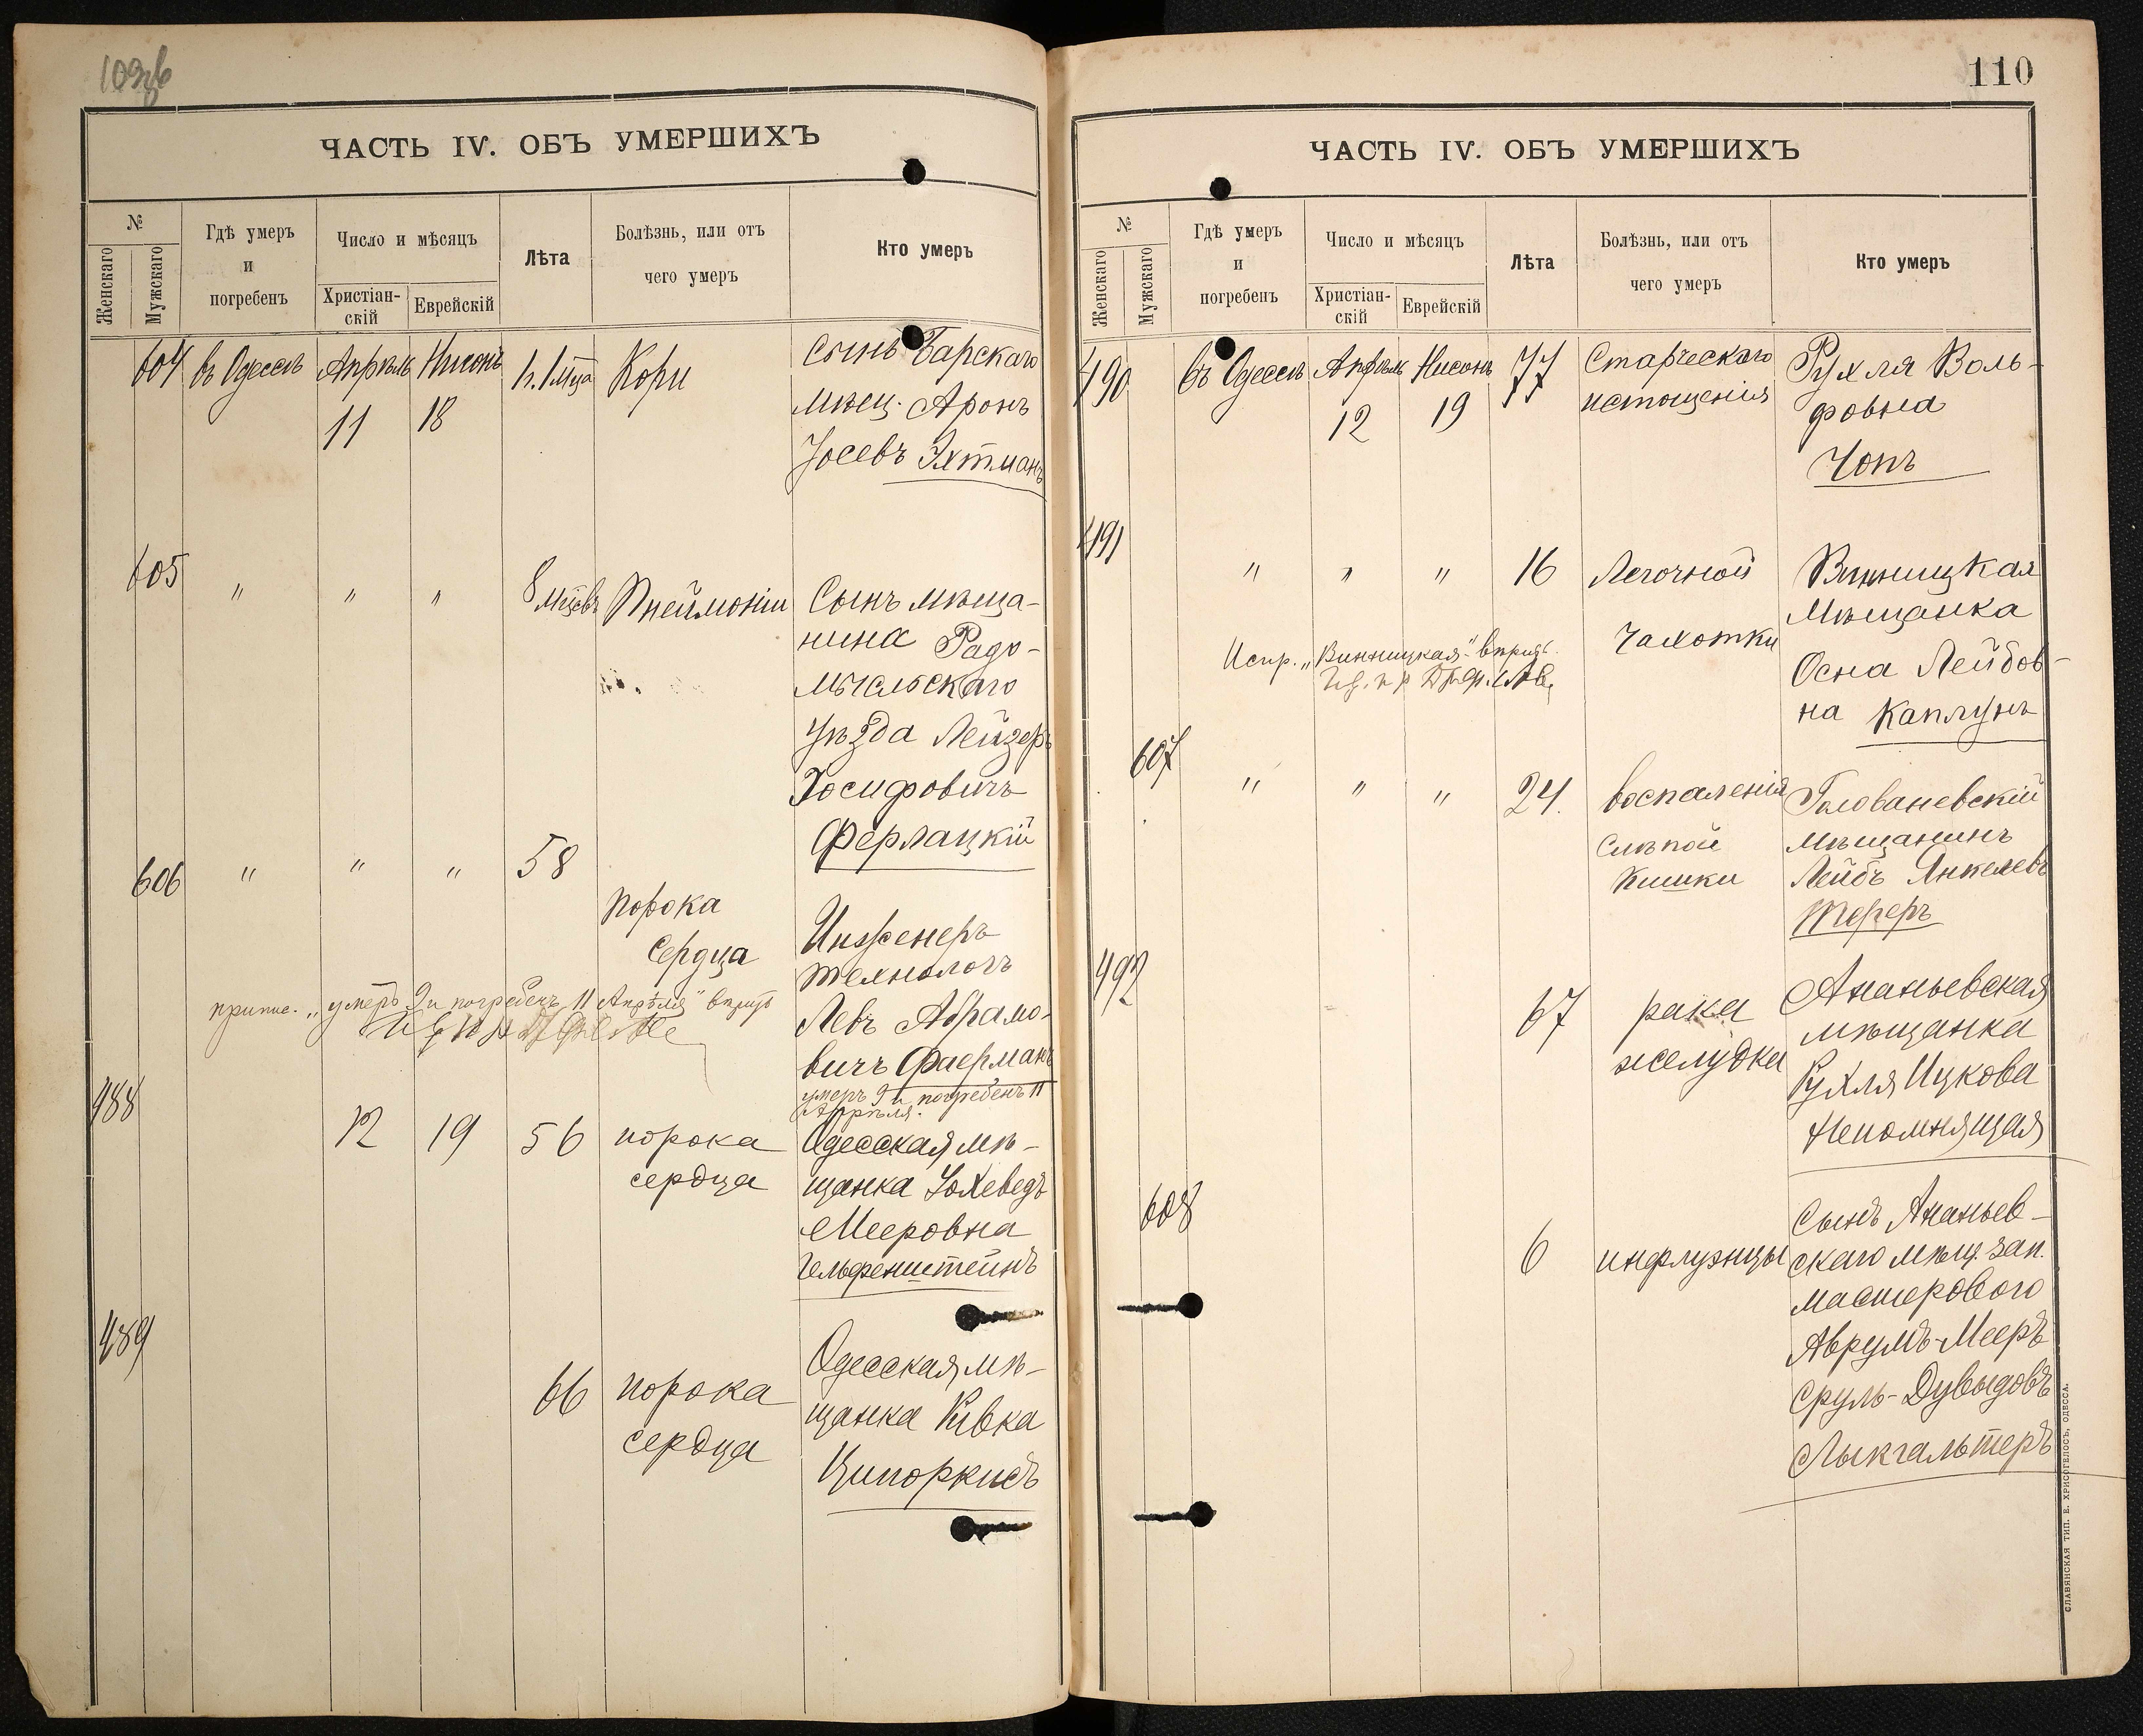 109об
ЧАСТЬ IV. ОБЪ УМЕРШИХЪ
№
Женскаго
Мужскаго
Гдѣ умеръ
и
погребенъ
Число и мѣсяцъ
Христіан-
скій
Еврейскій
Лѣта
Болѣзнь, или отъ
чего умеръ
Кто умеръ
604 въ Одессѣ Апрѣль Нисонъ Кори Сынъ Барскаго
11 18 мѣщ. Аронъ
Іосевъ Эхтманъ
605 " " " 8 мѣсцевъ Пнеймоніи Сынъ мѣща-
нина Радо-
мысльскаго
уѣзда Лейзеръ
Іосифовичъ
Ферлацкій
606 " " " 58 порока
сердца
Инженеръ
технологъ
Левъ Абрамо-
вичъ Фаерманъ
умеръ 9 и погребенъ 11
Апрѣля.
припис. „умеръ 9 и погребенъ 11 Апрѣля"
488 12 19 56 порока Одесская мѣ-
сердца щанка Іохеведъ
Мееровна
Гельфенштейнъ
489 66 порока Одесская мѣ-
сердца щанка Ривка
Ципоркисъ
110
ЧАСТЬ IV. ОБЪ УМЕРШИХЪ
№
Женскаго
Мужскаго
Гдѣ умеръ
и
погребенъ
Число и мѣсяцъ
Христіан-
скій
Еврейскій
Лѣта
Болѣзнь, или отъ
чего умеръ
Кто умеръ
490 въ Одессѣ Апрѣль Нисонъ 77 Старческаго Рухля Воль-
12 19 истощенія фовна
Чопъ
491 " " " 16 Легочной Винницкая
чахотки мѣщанка
Осна Лейбов-
на Каплунъ
Испр. „Винницкая"
607 " " " 24. воспаленія Голованевскій
слѣпой мѣщанинъ
кишки Лейбъ Янкелевъ
492 67 рака Ананьевская
желудка мѣщанка
Рухля Ицкова
Непомнящая
608 6 инфлуэнцы Сынъ Ананьев-
скаго мѣщ. зап.
мастерового
Аврумъ-Мееръ
Сруль-Дувыдовъ
Лыкгальтеръ
СЛАВЯНСКАЯ ТИП. Е. ХРИСОГЕЛОСЪ, ОДЕССА.